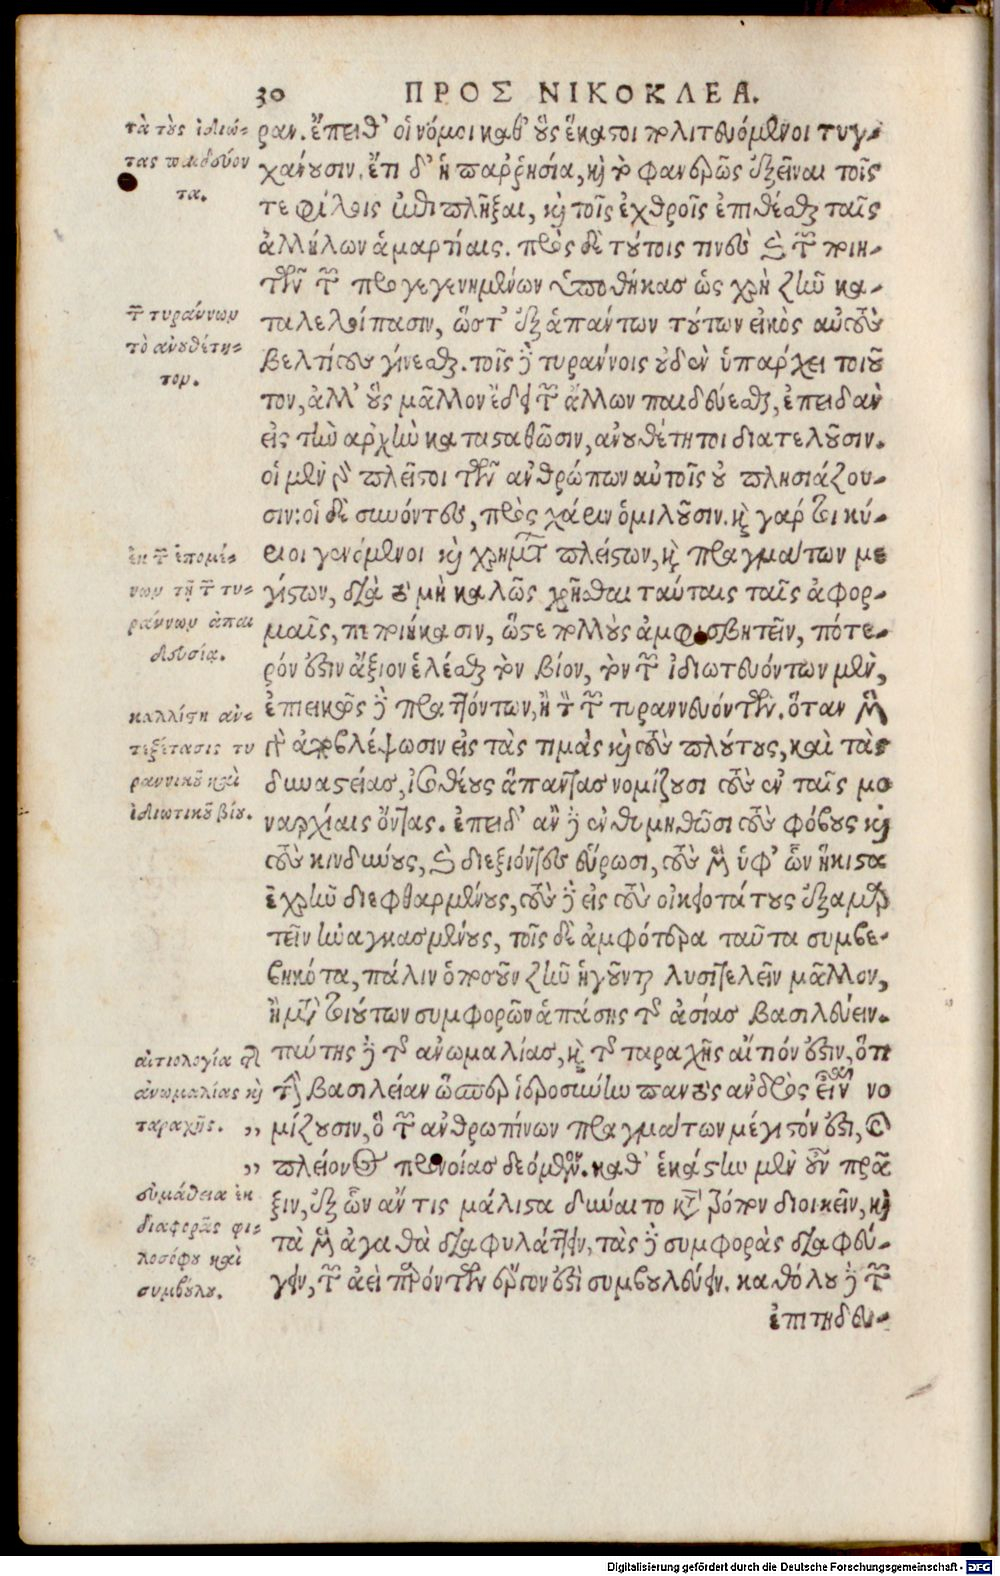 30 ΠΡΟΣ ΝΙΚΟΚΛΕΑ.
τὰ τοὺς ἰδιώ-
τας παιδεύον
τα.
ραν. ἔπειθ' οἱ νόμοι καθ' οὓς ἕκαστοι πολιτευόμενοι τυγ-
χάνουσιν. ἔτι δ' ἡ παῤῥησία, καὶ τὸ φανερῶς ἐξεῖναι τοῖς
τε φίλοις ἐπιπλῆξαι, καὶ τοῖς ἐχθροῖς ἐπιθέσθαι ταῖς
ἀλλήλων ἁμαρτίαις. πρὸς δὲ τούτοις τινὲς καὶ τῶν ποιη-
τῶν τῶν προγεγενημένων ὑποθήκας ὡς χρὴ ζῆν κα-
τῶν τυράννων
τὸ ἀνουθέτη-
τον.
ταλελοίπασιν, ὥστ' ἐξ ἁπάντων τούτων εἰκὸς αὐτοὺς
βελτίους γίνεσθαι. τοῖς δὲ τυράννοις οὐδὲν ὑπάρχει τοιοῦ
τον, ἀλλ' οὓς μᾶλλον ἔδει τῶν ἄλλων παιδεύεσθαι, ἐπειδὰν
εἰς τὴν ἀρχὴν καταςαθῶσιν, ἀνουθέτητοι διατελοῦσιν.
οἱ μὲν γὰρ πλεῖστοι τῶν ἀνθρώπων αὐτοῖς οὐ πλησιάζου-
σιν: οἱ δὲ συνόντες, πρὸς χάριν ὁμιλοῦσιν. καὶ γάρ τοι κύ-
ἐκ τῶν ἑπομέ-
νων τῇ τῶν τυ-
ράννων ἀπαι
δευσίᾳ.
ριοι γενόμενοι καὶ χρημάτων πλείστων, καὶ πραγμάτων με
γίστων, διὰ τὸ μὴ καλῶς χρῆσθαι ταύταις ταῖς ἀφορ-
μαῖς, πεποιήκασιν, ὥστε πολλοὺς ἀμφισβητεῖν, πότε-
ρόν ἐστιν ἄξιον ἑλέσθαι τὸν βίον, τὸν τῶν ἰδιωτευόντων μὲν,
ἐπιεικῶς δὲ πραττόντων, ἢ τὸν τῶν τυραννευόντων. ὅταν μὲν
καλλίστη ἀν-
τεξέτασις τυ
ραννικοῦ καὶ
ἰδιωτικοῦ βίου.
γὰρ ἀποβλέψωσιν εἰς τὰς τιμὰς καὶ τοὺς πλούτους, καὶ τὰς
δυναστείας, ἰσοθέους ἅπαντας νομίζουσι τοὺς ἐν ταῖς μο
ναρχίαις ὄντας. ἐπειδ' ἂν δὲ ἐνθυμηθῶσι τοὺς φόβους καὶ
τοὺς κινδύνους, καὶ διεξιόντες εὕρωσι, τοὺς μὲν ὑφ' ὧν ἥκιστα
ἐχρῆν διεφθαρμένους, τοὺς δὲ εἰς τοὺς οἰκειοτάτους ἐξαμαρ
τεῖν ἠναγκασμένους, τοῖς δὲ ἀμφότερα ταῦτα συμβε-
βηκότα, πάλιν ὁπωσοῦν ζῆν ἡγοῦνται λυσιτελεῖν μᾶλλον,
ἢ μετὰ τοιούτων συμφορῶν ἁπάσης τῆς ἀσίας βασιλεύειν.
αἰτιολογία τῆς
ἀνωμαλίας καὶ
ταραχῆς.
ταύτης δὲ τῆς ἀνωμαλίας, καὶ τῆς ταραχῆς αἴτιόν ἐστιν, ὅτι
τὴν βασιλείαν ὥσπερ ἱεροσύνην παντὸς ἀνδρὸς εἶναι νο
,, μίζουσιν, ὃ τῶν ἀνθρωπίνων πραγμάτων μέγιστόν ἐστι, καὶ
,, πλείονος προνοίας δεόμενον. καθ' ἑκάστην μὲν οὖν πρᾶ
συμάθεια ἐκ
διαφορᾶς φι-
λοσόφου καὶ
συμβούλου.
ξιν, ἐξ ὧν ἄν τις μάλιστα δύναιτο κατὰ τρόπον διοικεῖν, καὶ
τὰ μὲν ἀγαθὰ διαφυλάττειν, τὰς δὲ συμφορὰς διαφεύ-
γειν, τῶν ἀεὶ παρόντων ἔργον ἐστὶ συμβουλεύειν. καθόλου δὲ τῶν
ἐπιτηδευ-
Digitalisierung gefördert durch die Deutsche Forschungsgemeinschaft - DFG